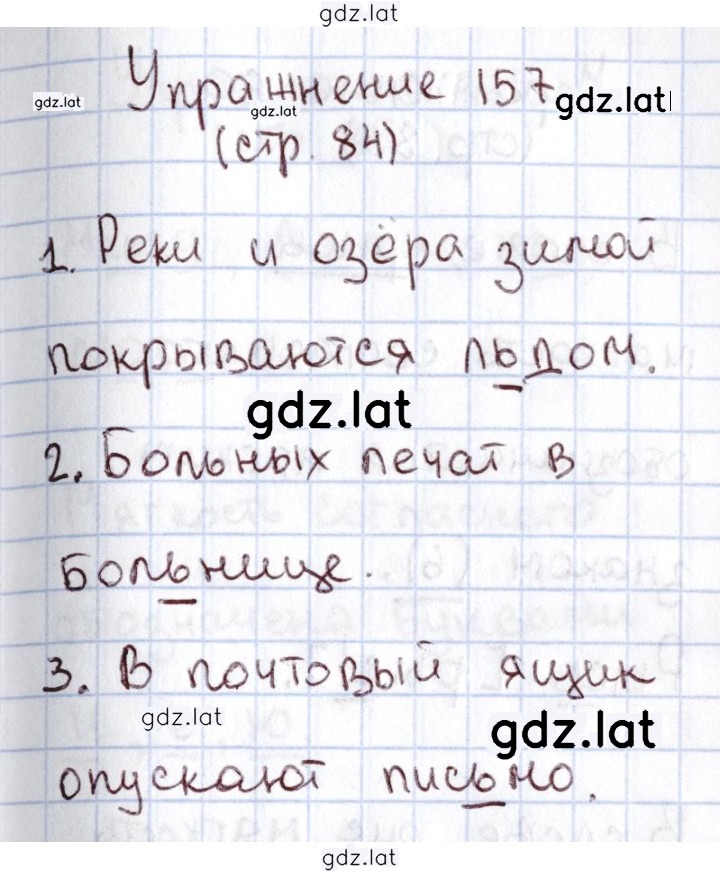 gdz.lat
Упражнение 157
gdz.lat
gdz.lat
gdz.lat
(стр. 84)
1. Реки и озёра зимой
покрываются льдом.
gdz.lat
2. Больных лечат в
больнице.
3. В почтовый ящик
gdz.lat
gdz.lat
опускают письмо.
gdz.lat